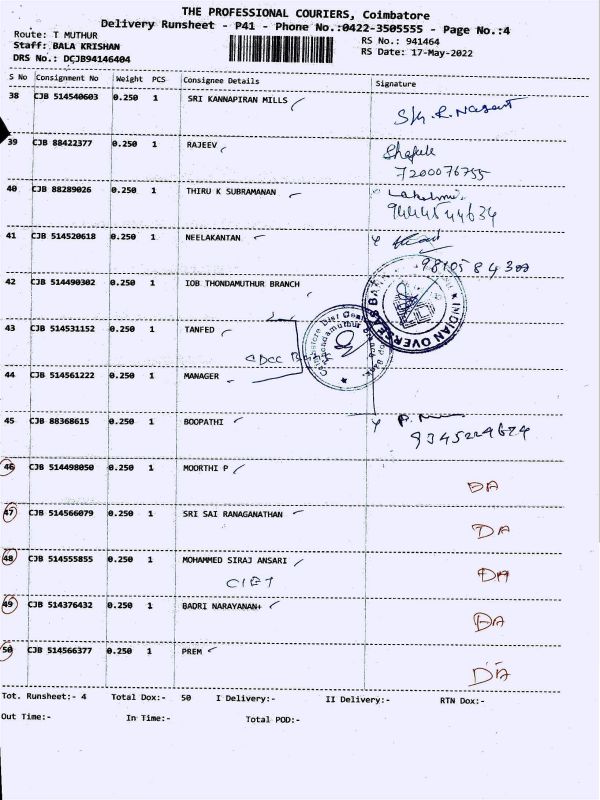 THE PROFESSIONAL COURIERS, Coimbatore
Delivery Runsheet - P41 - Phone No.:0422-3505555 - Page No.:4
Route: T MUTHUR
Staff: BALA KRISHAN
DRS No.: DCJB94146404
RS No.: 941464
RS Date: 17-May-2022
S No Consignment No Weight PCS Consignee Details Signature
38 CJB 514540603 0.250 1 SRI KANNAPIRAN MILLS
39 CJB 88422377 0.250 1 RAJEEV
7200076755
40 CJB 88289026 0.250 1 THIRU K SUBRAMANAN
9444544634
41 CJB 514520618 0.250 1 NEELAKANTAN
42 CJB 514490302 0.250 1 IOB THONDAMUTHUR BRANCH
INDIAN OVERSEAS BANK
43 CJB 514531152 0.250 1 TANFED
44 CJB 514561222 0.250 1 MANAGER
45 CJB 88368615 0.250 1 BOOPATHI
46 CJB 514498050 0.250 1 MOORTHI P DA
47 CJB 514566079 0.250 1 SRI SAI RANAGANATHAN DA
48 CJB 514555855 0.250 1 MOHAMMED SIRAJ ANSARI DA
49 CJB 514376432 0.250 1 BADRI NARAYANAN+ DA
50 CJB 514566377 0.250 1 PREM DA
Tot. Runsheet:- 4 Total Dox:- 50 I Delivery:- II Delivery:- RTN Dox:-
Out Time:- In Time:- Total POD:-